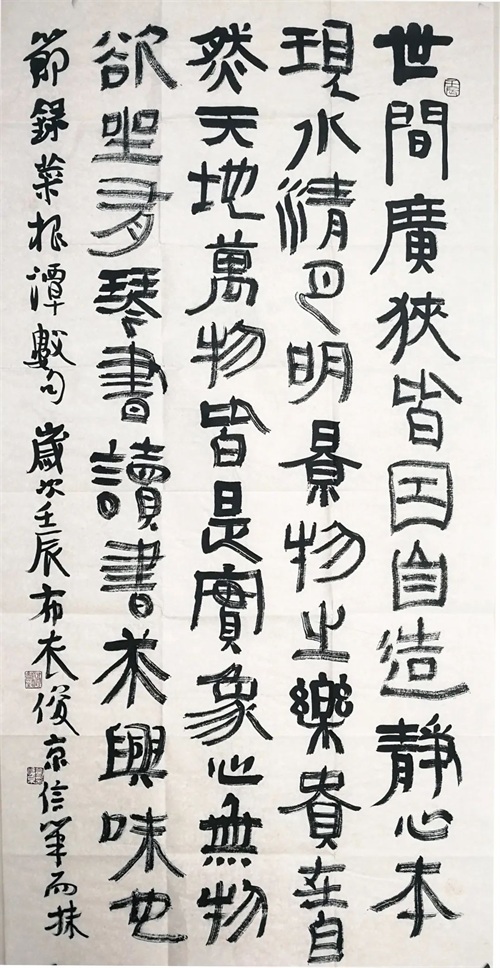 世間廣狹皆因自造靜心本
現水清月明景物之樂貴在自
然天地萬物皆是實象心無物
欲坐有琴書讀書求興味也
節録菜根潭數句歲次壬辰布衣俊京信筆而抹